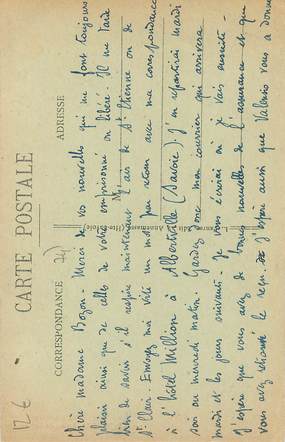 CARTE POSTALE
CORRESPONDANCE
ADRESSE
Chère madame Bozon - Merci de vos nouvelles qui me font toujours
plaisir ainsi que de celles de votre emprisonné ou libéré. Il me tarde
de savoir s'il respire maintenant l'air de St Etienne ou de
St Clair. Envoyez moi vite un mot par retour avec ma correspondance
à l'hôtel Million à Albertville (Savoie). J'en repartirai mardi
soir ou mercredi matin. Gardez donc mon courrier qui arrivera
mardi et les jours suivants. Je vous écrirai où je vais ensuite.
J'espère que vous avez de bonnes nouvelles de l'assurance et que
vous avez retourné le reçu. J'espère aussi que Valensio vous a donné
12 €